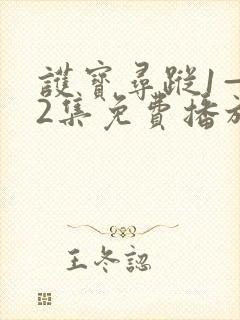 護寶尋蹤1—
2集免費播放
王冬認